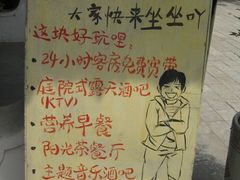 大家快来坐坐吖
这块好玩哩:
·24小时客房免费宽带
·庭院式露天酒吧
(KTV)
·营养早餐
·阳光茶餐厅
·主题音乐酒吧